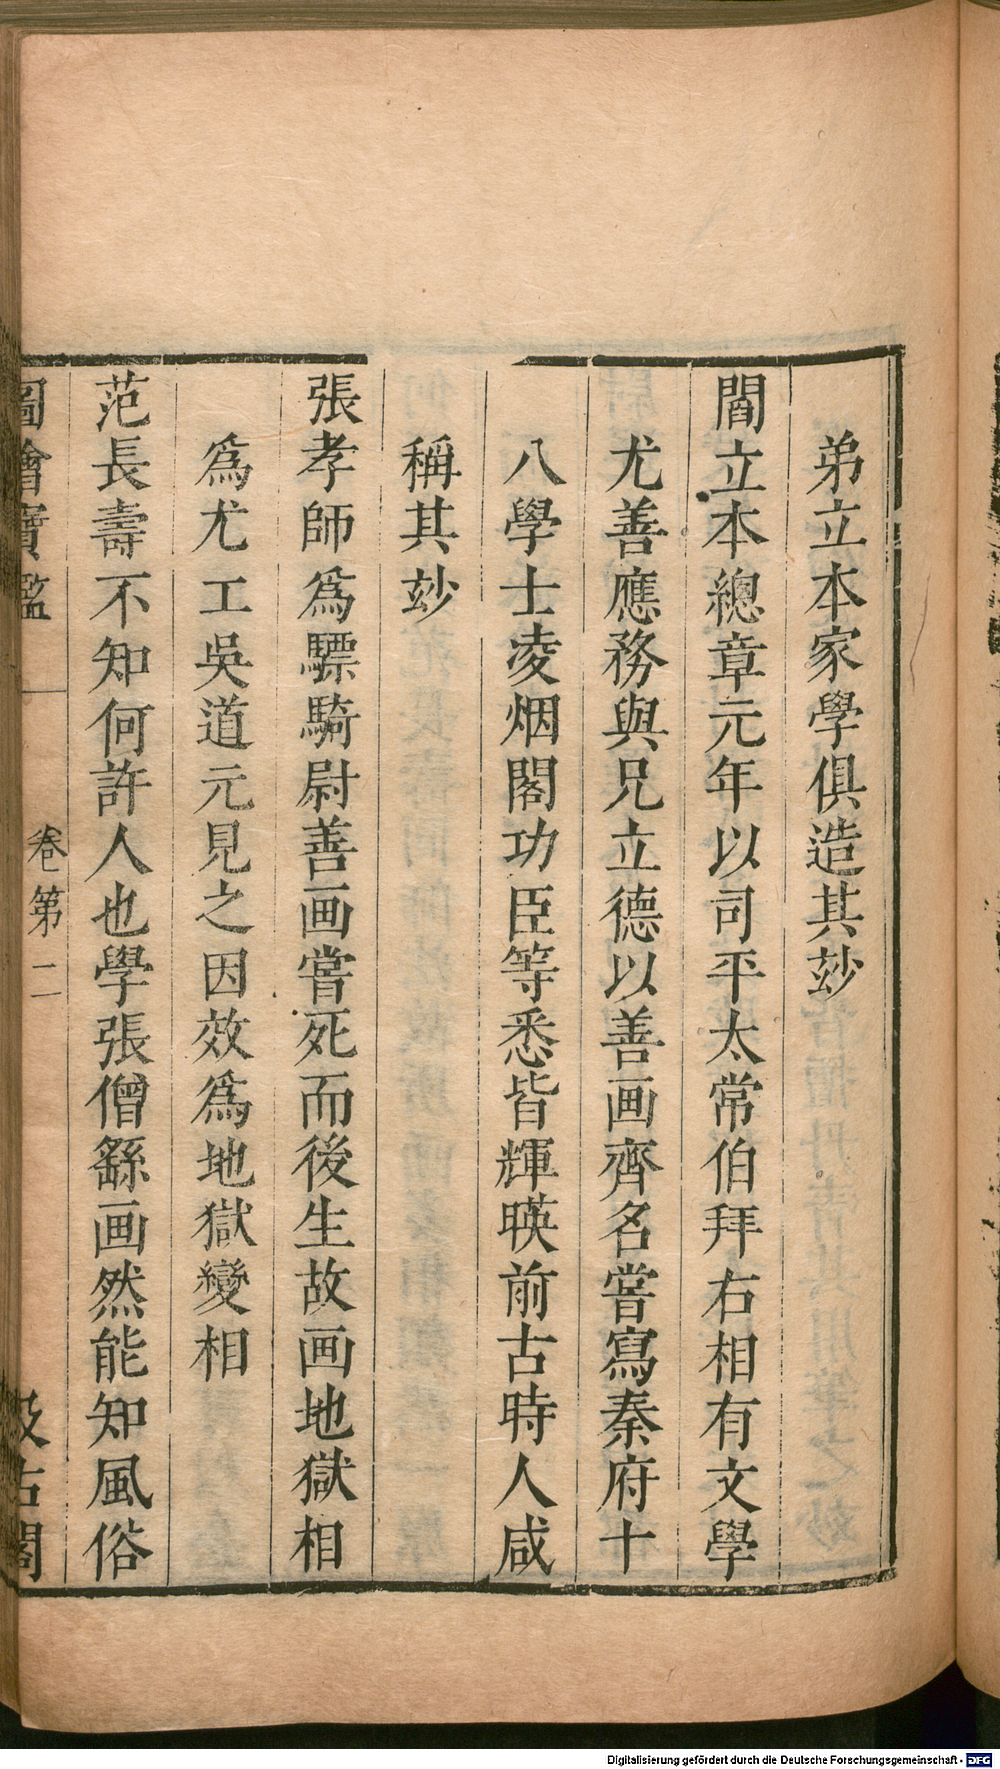 弟立本家學俱造其玅
閻立本總章元年以司平太常伯拜右相有文學
尤善應務與兄立德以善画齊名嘗寫秦府十
八學士凌烟閣功臣等悉皆輝暎前古時人咸
稱其玅
張孝師爲驃騎尉善画嘗死而後生故画地獄相
爲尤工吳道元見之因效爲地獄變相
范長壽不知何許人也學張僧繇画然能知風俗
圖繪寶鑑 卷第二 汲古閣
Digitalisierung gefördert durch die Deutsche Forschungsgemeinschaft - DFG